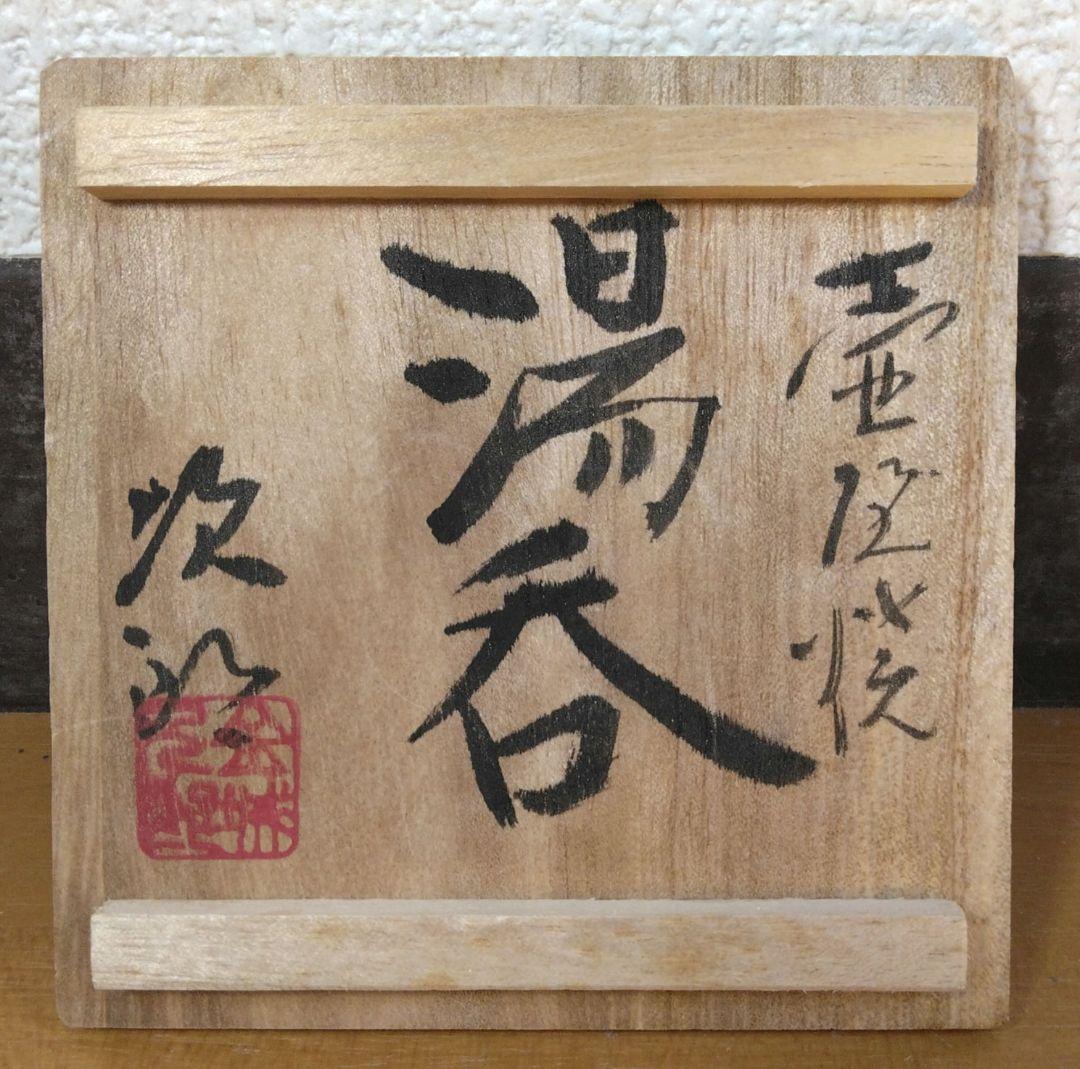 壺屋焼
湯呑
次郎